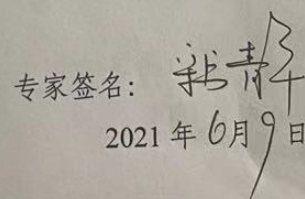 专家签名:
2021年6月9日